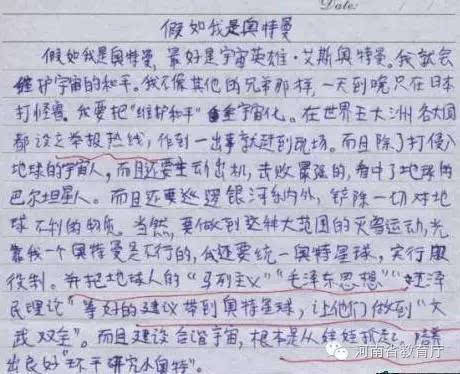 Date:
假如我是奥特曼
假如我是奥特曼,最好是宇宙英雄·艾斯奥特曼。我就会
维护宇宙的和平。我不像其他的兄弟那样,一天到晚只在日本
打怪兽。我要把“维护和平”宇宙化。在世界五大洲各大国
都设立举报热线,作到一出事就赶到现场。而且除了打侵入
地球的宇宙人,而且还要主动出机,击败最强的,看中了地球的
巴尔坦星人。而且还要巡逻银河系内外,铲除一切对地
球不利的物质。当然,要做到这种大范围的灭兽运动,光
靠我一个奥特曼是不行的,我还要统一奥特星球,实行服
役制。并把地球人的“马列主义”“毛泽东思想”“
民理论”等好的建议带到奥特星球,让他们做到“文
武双全”。而且建设合谐宇宙,根本是从娃娃抓起。培养
出良好“环平研究小奥特”。
河南省教育厅